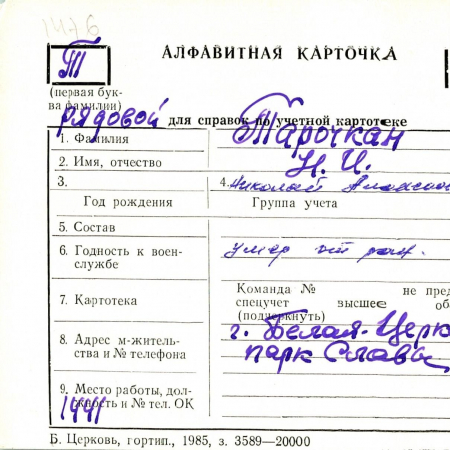 1476
Т
АЛФАВИТНАЯ КАРТОЧКА
(первая бук-
ва фамилии)
рядовой для справок по учетной картотеке
1. Фамилия Тарочкан
2. Имя, отчество Н. И.
3. 4. Николай
Год рождения Группа учета
5. Состав
6. Годность к воен-
службе умер от ран.
7. Картотека Команда № не пред
спецучет высшее об
(подчеркнуть)
8. Адрес м-житель-
ства и № телефона г. Белая-Церк
парк Славы
9. Место работы, дол-
жность и № тел. ОК
1941
Б. Церковь, гортип., 1985, з. 3589—20000